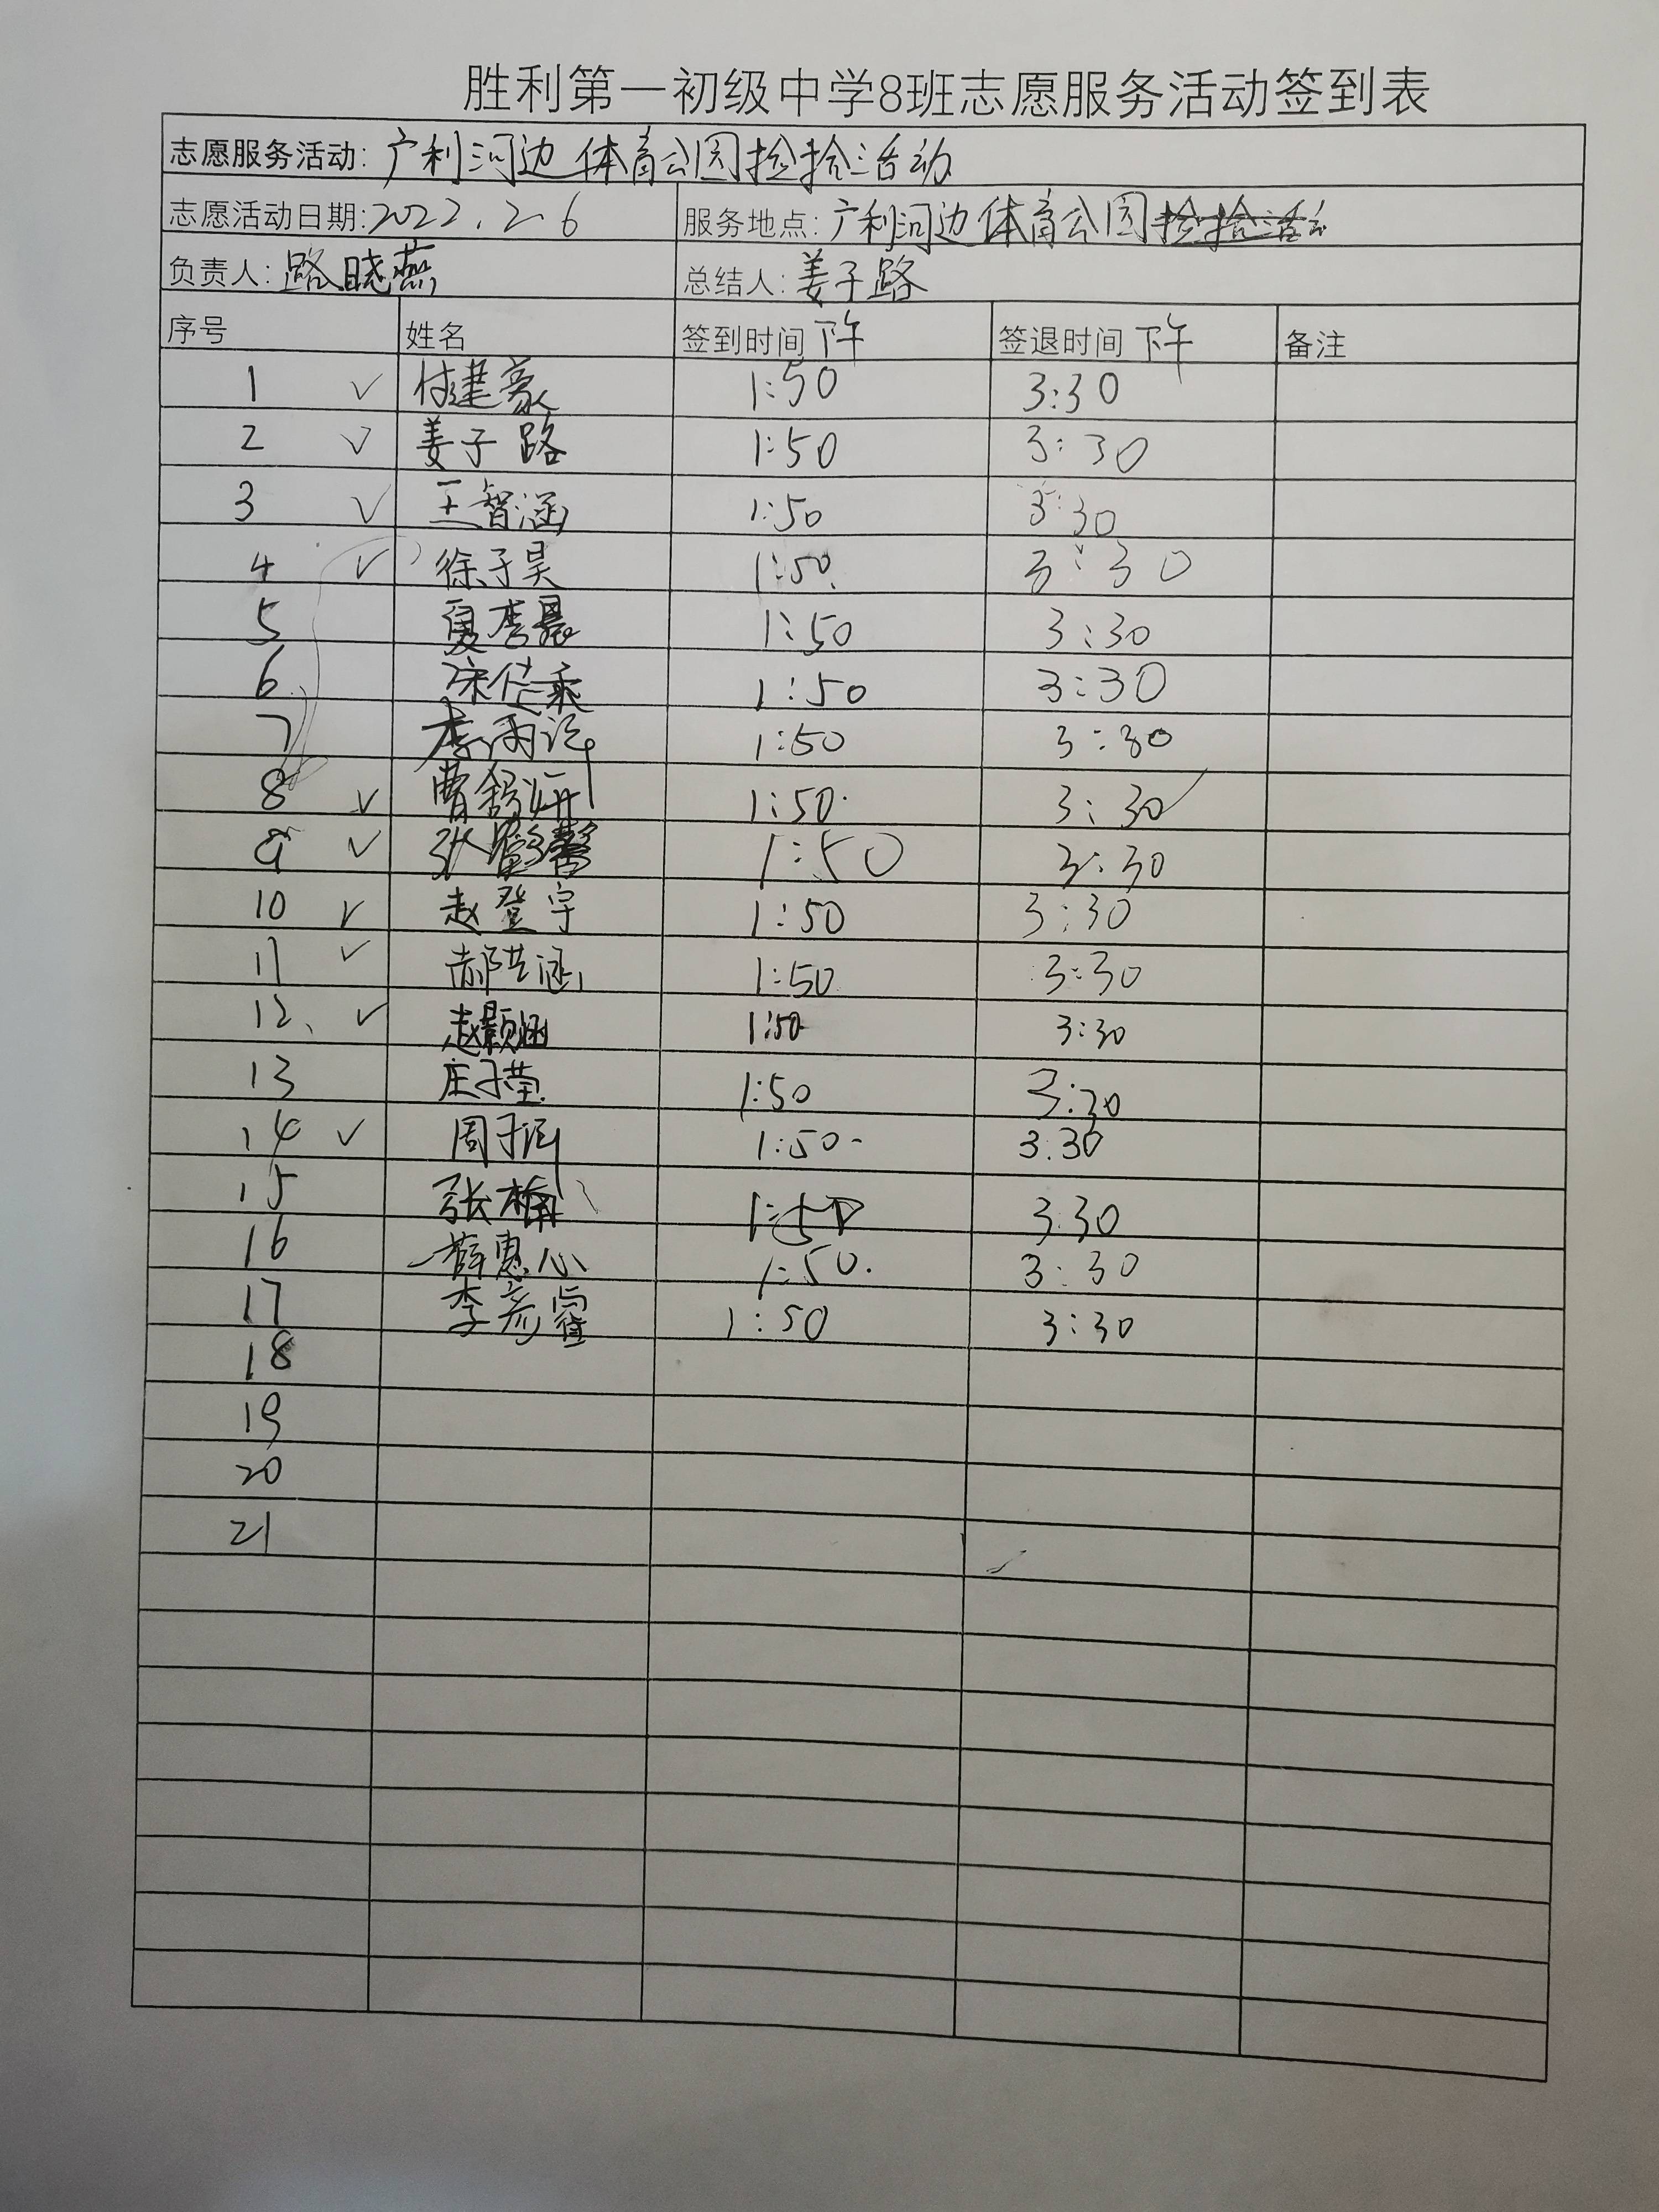 胜利第一初级中学8班志愿服务活动签到表
志愿服务活动: 广利河边体育公园捡拾活动
志愿活动日期: 2022.2.6 服务地点: 广利河边体育公园捡拾活动
负责人: 路晓燕 总结人: 姜子路
序号 姓名 签到时间 下午 签退时间 下午 备注
1 ✓ 付建豪 1:50 3:30
2 ✓ 姜子路 1:50 3:30
3 ✓ 王智涵 1:50 3:30
4 ✓ 徐子昊 1:50 3:30
5 夏李晨 1:50 3:30
6 1:50 3:30
7 李雨 1:50 3:30
8 ✓ 曹舒妍 1:50 3:30
9 ✓ 张馨 1:50 3:30
10 ✓ 赵登宇 1:50 3:30
11 ✓ 郝艺涵 1:50 3:30
12、 ✓ 赵颖涵 1:50 3:30
13 庄子莹 1:50 3:30
14 ✓ 周子涵 1:50 3:30
15 张楠 1:50 3:30
16 薛惠心 1:50 3:30
17 李彦睿 1:50 3:30
18
19
20
21